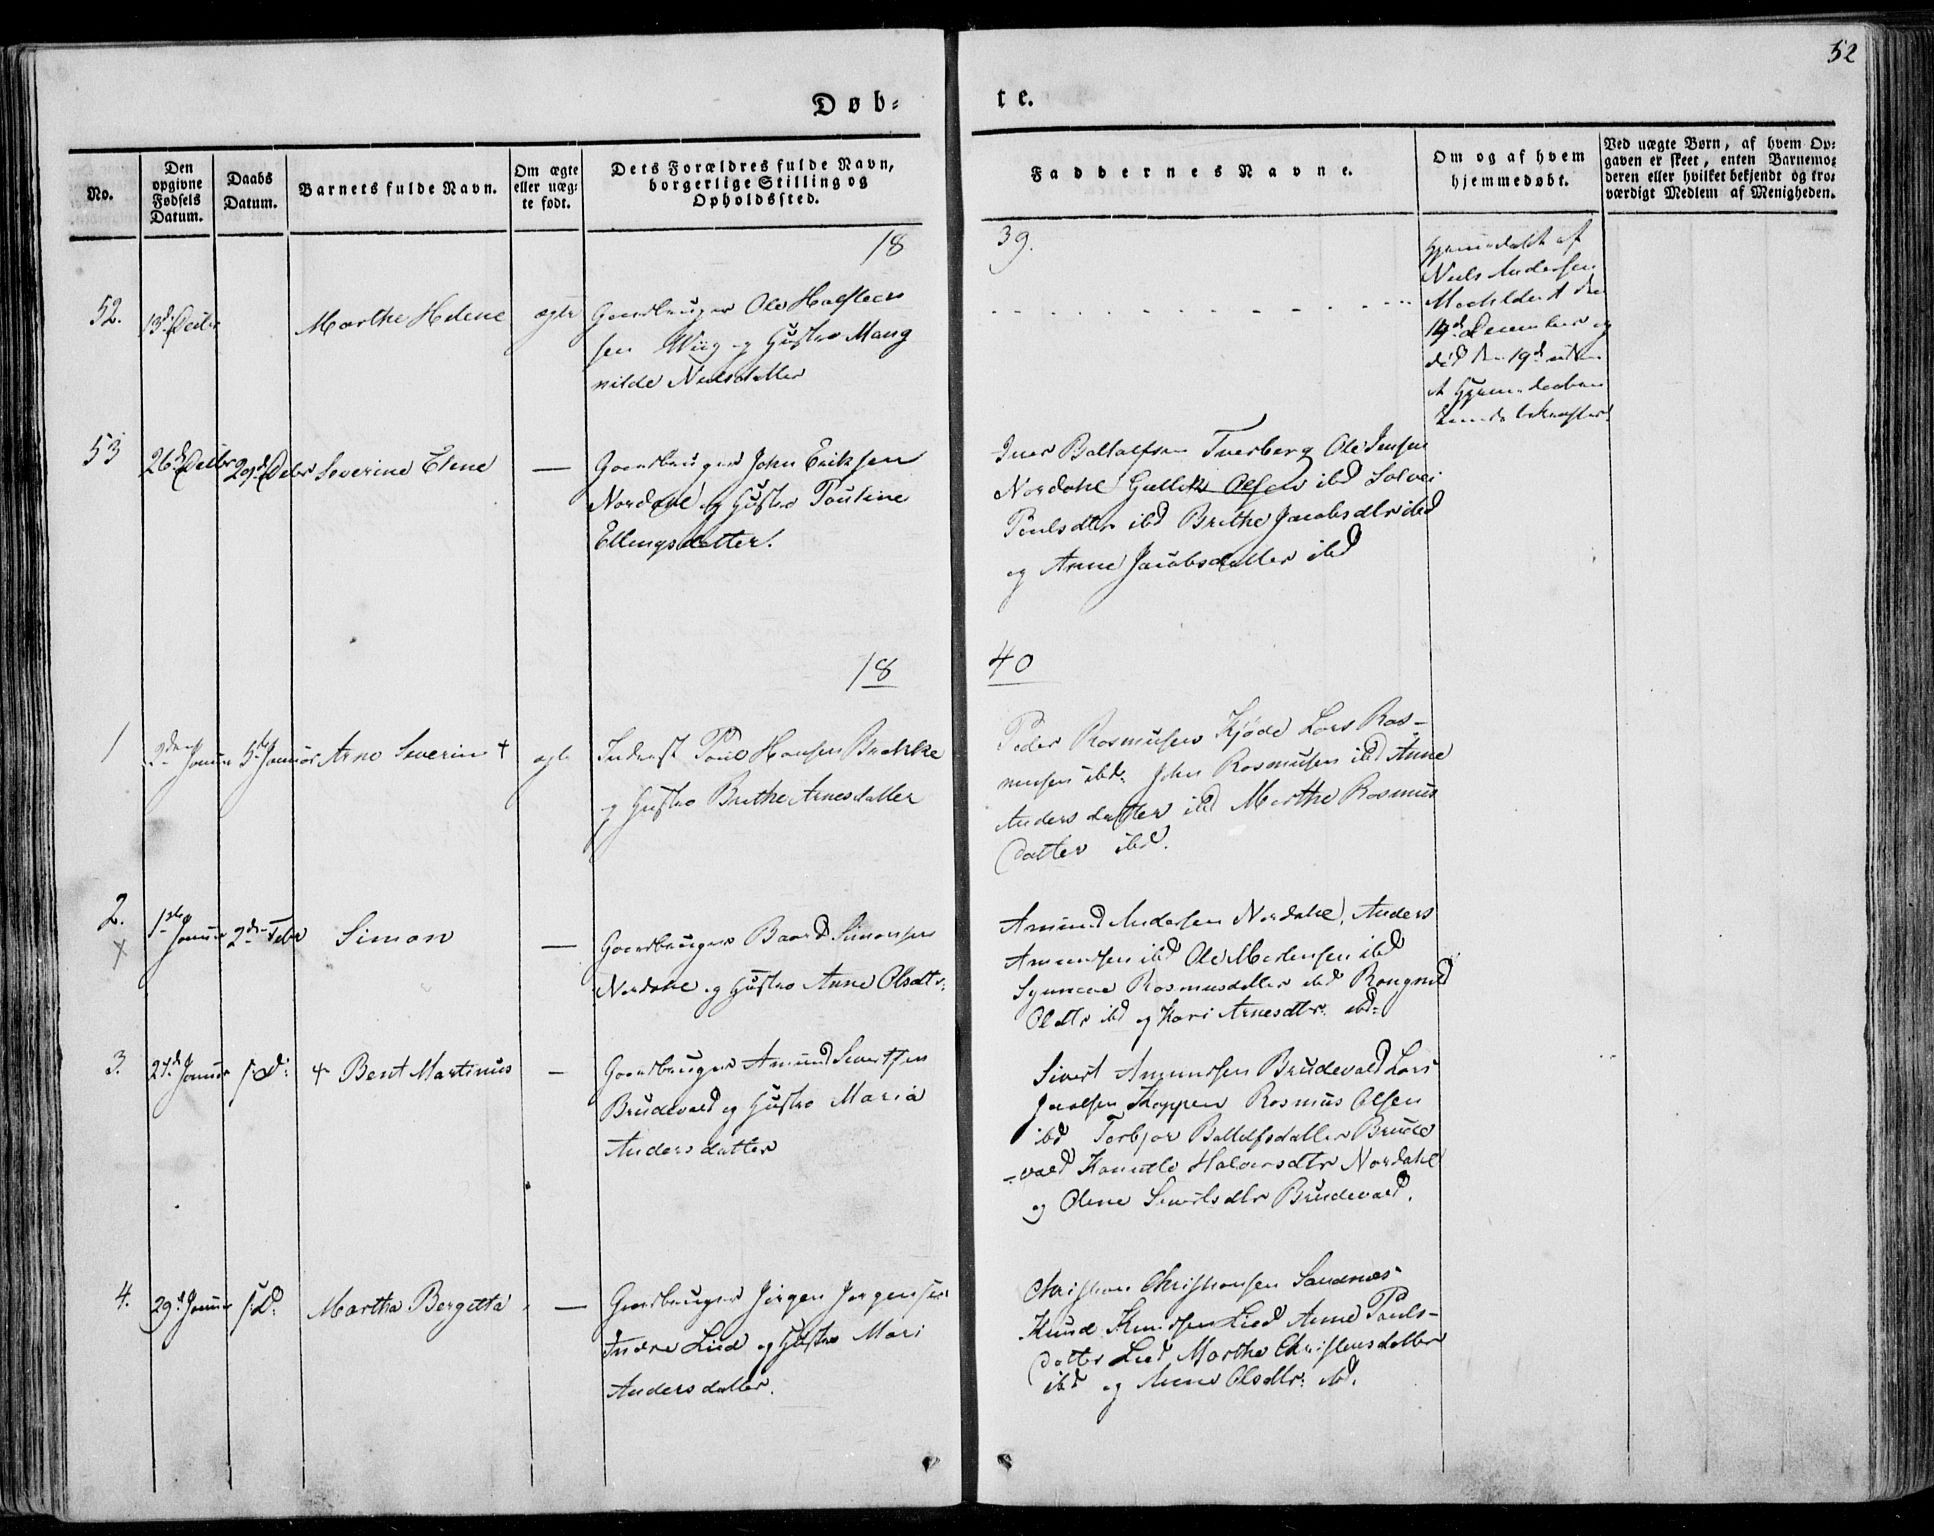 52
Døb-
te.
No.
Den
opgivne
Fødsels
Datum.
Daabs
Datum.
Barnets fulde Navn.
Om ægte
eller uæg-
te født.
Dets Forældres fulde Navn,
borgerlige Stilling og
Opholdssted.
Faddernes Navne.
Om og af hvem
hjemmedøbt.
Ved uægte Børn, af hvem Op-
gaven er skeet, enten Barnemo-
deren eller hvilket bekjendt og tro-
værdigt Medlem af Menigheden.
18
39.
52.
13d Decbr
Marthe Helene
ægte
Gaardbruger Ole Halsteen
sen Wiig og Hustro Mang
nilde Nielsdatter
Hjemmedøbt af
Niels Andersen
den
14d December og
død den 19d uden
at Hjemmedaaben
53
26d Decbr
29d Decbr
Severine Elene
—
Gaardbruger John Eriksen
Nordahl og Hustro Pouline
Ellingsdatter.
Iver Baltolfsen Tverberg Ole Jensen
Nordahl Gullik Olsen ibd Solvei
Poulsdtr ibd Brithe Jacobsdtr ibd
og Anne Jacobsdatter ibd
18
40
1
Januar
5te Januar
Arne Severin +
ægte
Inderst Poul Hansen Brekke
og Hustro Brithe Arnesdatter
Peder Rasmusen Kjøde Lars Ras-
musen ibd. John Rasmusen ibd Anne
Andersdatter ibd Marthe Rasmus
datter ibd.
2.
+
1ste Januar
2den Febr
Simon
—
Gaardbruger Baard Simonsen
Nordahl og Hustro Anne Olsdtr.
Amund Andersen Nordahl, Anders
Amundsen ibd Ole Mortensen ibd
Synneve Rasmusdatter ibd Rangnild
Olsdtr ibd og Kari Arnesdtr. ibd.
3.
27d Januar
s. D.
+ Bent Martinus
—
Gaardbruger Amund Sivertsen
Brudevold og Hustro Maria
Andersdatter
Sivert Amundsen Brudevold Lars
Koppen Rasmus Olsen
ibd Torbjør Baltolfsdatter Brude
-vold Halvorsdtr Nordahl
og Olene Sivertsdtr Brudevold.
4.
29d Januar
s. D.
Martha Bergitta
—
Gaardbruger Jørgen Jørgensen
Indre Lied og Hustro Mari
Andersdatter.
Christian Christiansen Sandnes
Knud Knudsen Lied Anne Pouls-
datter Lied Marthe Christensdatter
ibd og Anne Olsdtr. ibd.